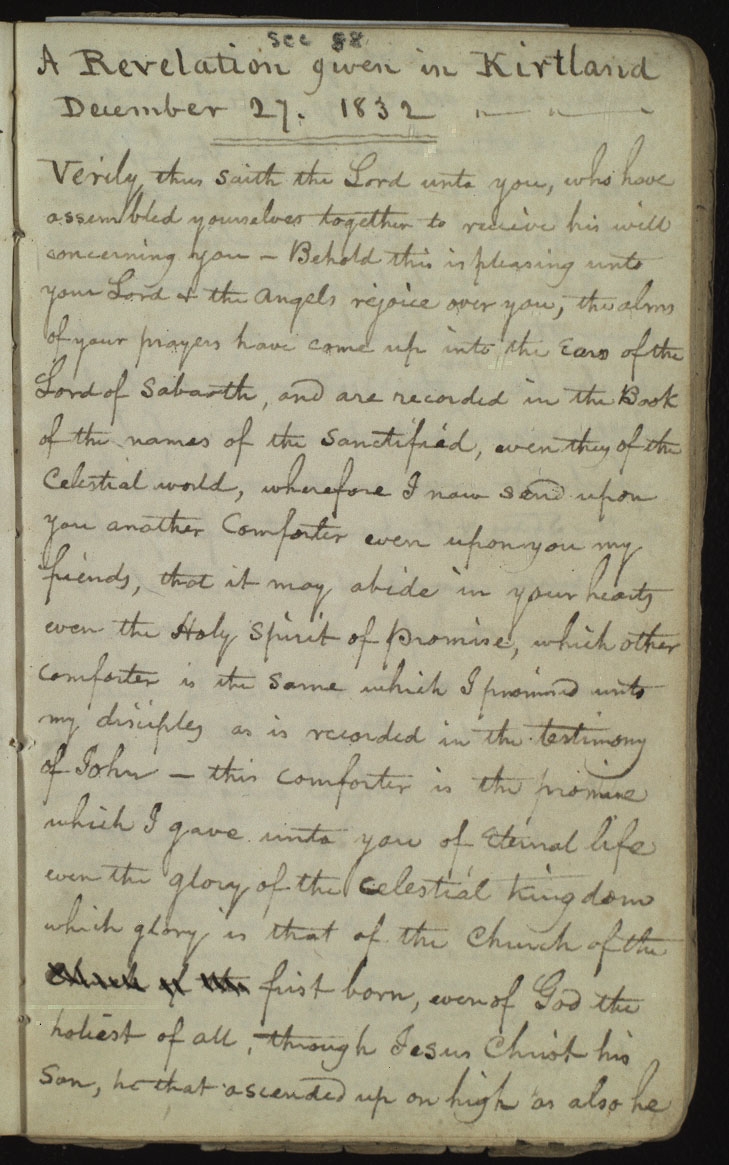 Sec 88
A Revelation given in Kirtland
December 27. 1832
Verily thus saith the Lord unto you, who have
assembled yourselves together to receive his will
concerning you – Behold this is pleasing unto
your Lord & the angels rejoice over you, the alms
of your prayers have come up into the Ears of the
Lord of Sabaoth, and are recorded in the Book
of the names of the Sanctified, even they of the
Celestial world, wherefore I now send upon
you another Comforter even upon you my
friends, that it may abide in your hearts
even the Holy Spirit of promise, which other
comforter is the same which I promised unto
my disciples as is recorded in the testimony
of John – this comforter is the promise
which I gave unto you of Eternal life
even the glory of the Celestial kingdom
which glory is that of the Church of the
first born, even of God the
holiest of all, through Jesus Christ his
Son, he that ascended up on high as also he